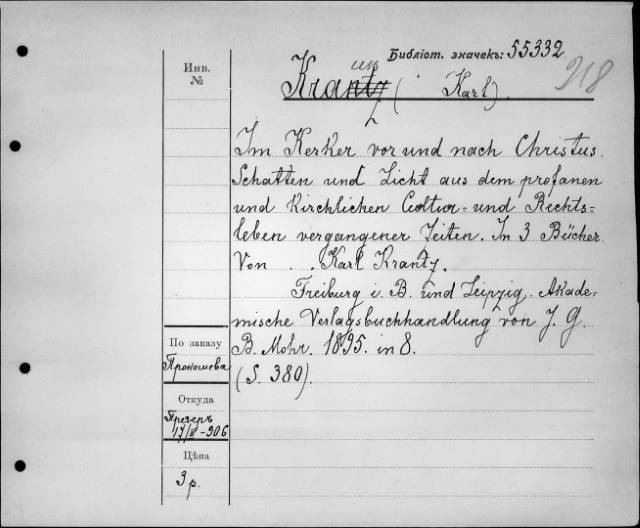 Библіот. значекъ: 55332
918
Инв.
№
Krantz (Karl).
Im Kerker vor und nach Christus.
Schatten und Licht aus dem profanen
und Kirchlichen Cultur- und Rechts-
leben vergangener Zeiten. In 3 Bücher
Von . . Karl Krantz.
Freiburg i. B. und Leipzig. Akade-
mische Verlagsbuchhandlung von J. G.
B. Mohr. 1895. in 8.
(S. 380).
По заказу
Прокошева
Откуда
17/ -906
Цѣна
3 р.